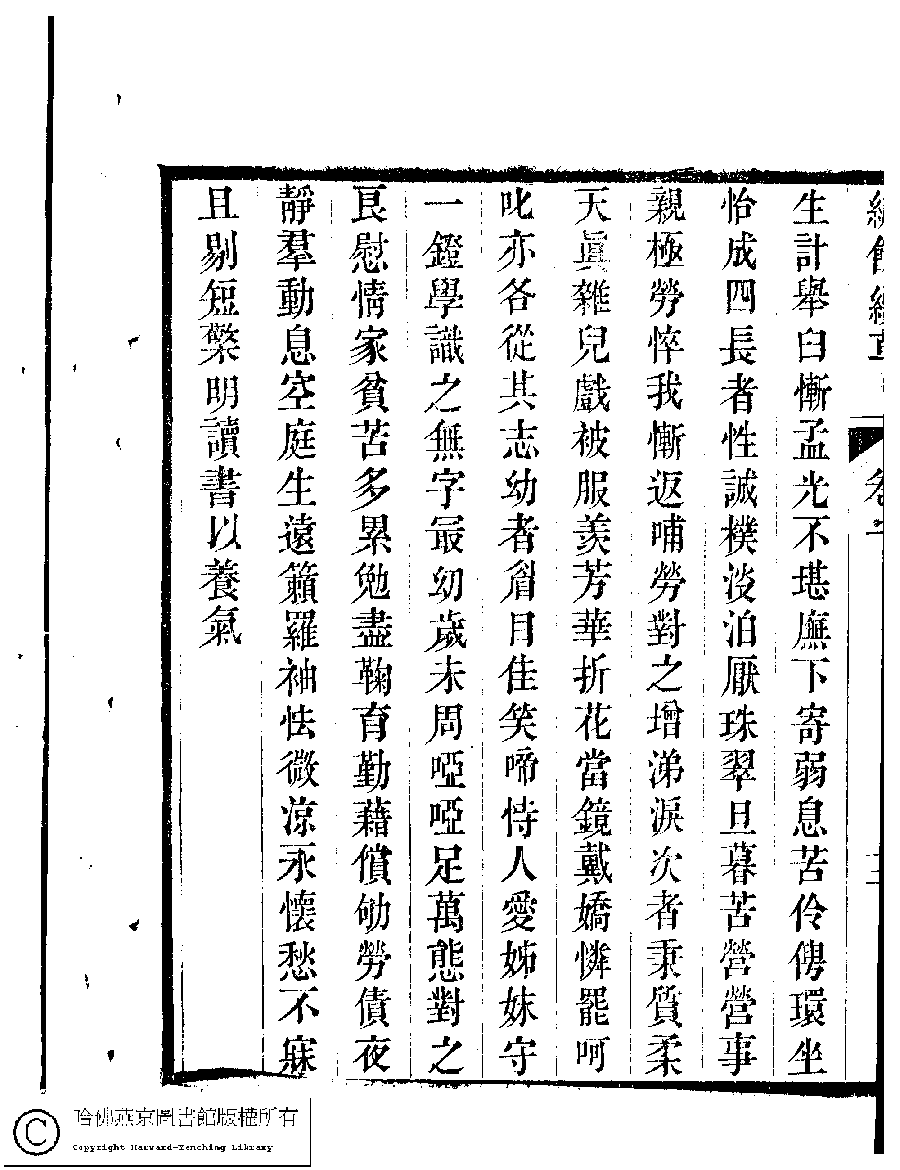 生計舉臼慚孟光不堪廡下寄弱息苦伶俜環坐
怡成四長者性誠樸淡泊厭珠翠旦暮苦營營事
親極勞悴我慚返哺勞對之增涕淚次者秉質柔
天眞雜兒戲被服羨芳華折花當鏡戴嬌憐罷呵
叱亦各從其志幼者眉目佳笑啼恃人愛姊妹守
一鐙學識之無字最幼歲未周啞啞足萬態對之
良慰情家貧苦多累勉盡鞠育勤藉償劬勞債夜
靜羣動息空庭生遠籟羅袖怯微涼永懷愁不寐
且剔短檠明讀書以養氣
哈佛燕京圖書館版權所有
Copyright Harvard-Yenching Library